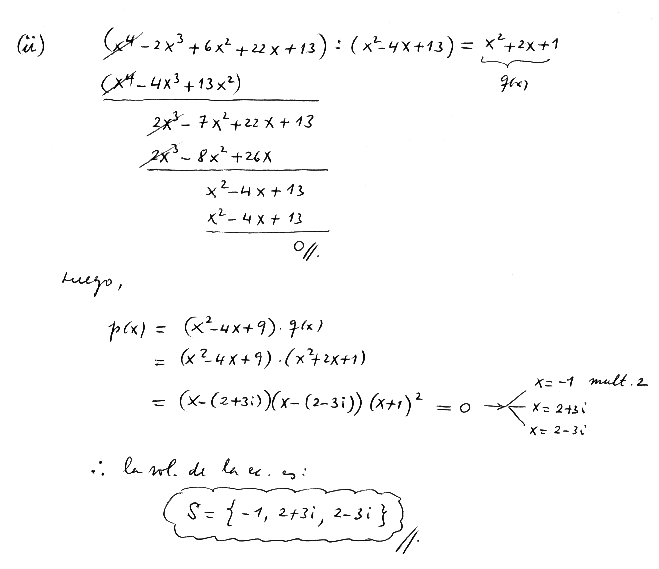 (ii) (x⁴ - 2x³ + 6x² + 22x + 13) : (x² - 4x + 13) = x² + 2x + 1
(x⁴ - 4x³ + 13x²) q(x)
2x³ - 7x² + 22x + 13
2x³ - 8x² + 26x
x² - 4x + 13
x² - 4x + 13
0//.
Luego,
p(x) = (x² - 4x + 9) · q(x)
= (x² - 4x + 9) · (x² + 2x + 1)
= (x - (2+3i))(x - (2-3i)) (x+1)² = 0 → x = -1 mult. 2
x = 2+3i
x = 2-3i
∴ la sol. de la ec. es:
S = { -1, 2+3i, 2-3i } //.